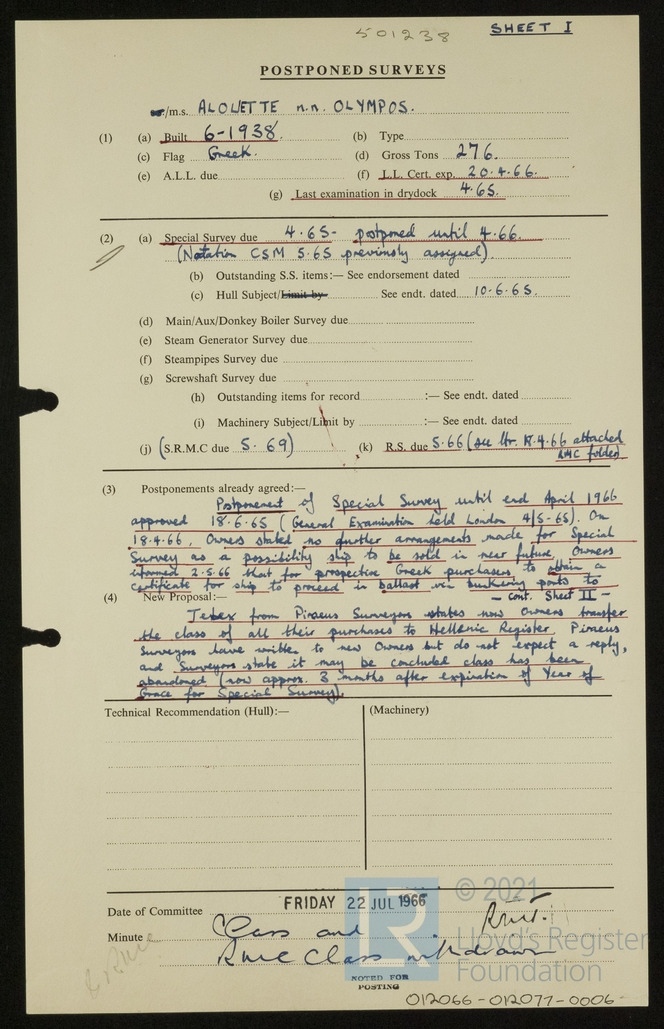 501238 SHEET I
POSTPONED SURVEYS
/m.s. ALOUETTE n.n. OLYMPOS.
(1) (a) Built 6-1938. (b) Type
(c) Flag Greek. (d) Gross Tons 276.
(e) A.L.L. due (f) L.L. Cert. exp. 20.4.66.
(g) Last examination in drydock 4.65.
(2) (a) Special Survey due 4.65- postponed until 4.66.
(Notation CSM 5.65 previously assigned).
(b) Outstanding S.S. items:— See endorsement dated
(c) Hull Subject/Limit by See endt. dated 10.6.65.
(d) Main/Aux/Donkey Boiler Survey due
(e) Steam Generator Survey due
(f) Steampipes Survey due
(g) Screwshaft Survey due
(h) Outstanding items for record :— See endt. dated
(i) Machinery Subject/Limit by :— See endt. dated
(j) (S.R.M.C due 5.69) (k) R.S. due 5.66 (see ltr. 4.66 attached
RMC folder)
(3) Postponements already agreed:—
Postponement of Special Survey until end April 1966
approved 18.6.65 (General Examination held London 4/5-65). On
18.4.66, Owners stated no further arrangements made for Special
Survey as a possibility ship to be sold in near future. Owners
informed 2.5.66 that for prospective Greek purchasers to obtain a
certificate for ship to proceed in ballast via bunkering ports to
— cont. Sheet II —
(4) New Proposal:—
Telex from Piraeus Surveyors states new Owners transfer
the class of all their purchases to Hellenic Register. Piraeus
Surveyors have written to new Owners but do not expect a reply,
and Surveyors state it may be concluded class has been
abandoned (now approx. 3 months after expiration of Year of
Grace for Special Survey).
Technical Recommendation (Hull):— (Machinery)
Date of Committee FRIDAY 22 JUL 1966
Minute Class and
RMC Class withdrawn
NOTED FOR
POSTING
© 2021
Lloyd's Register
Foundation
012066-012077-0006-